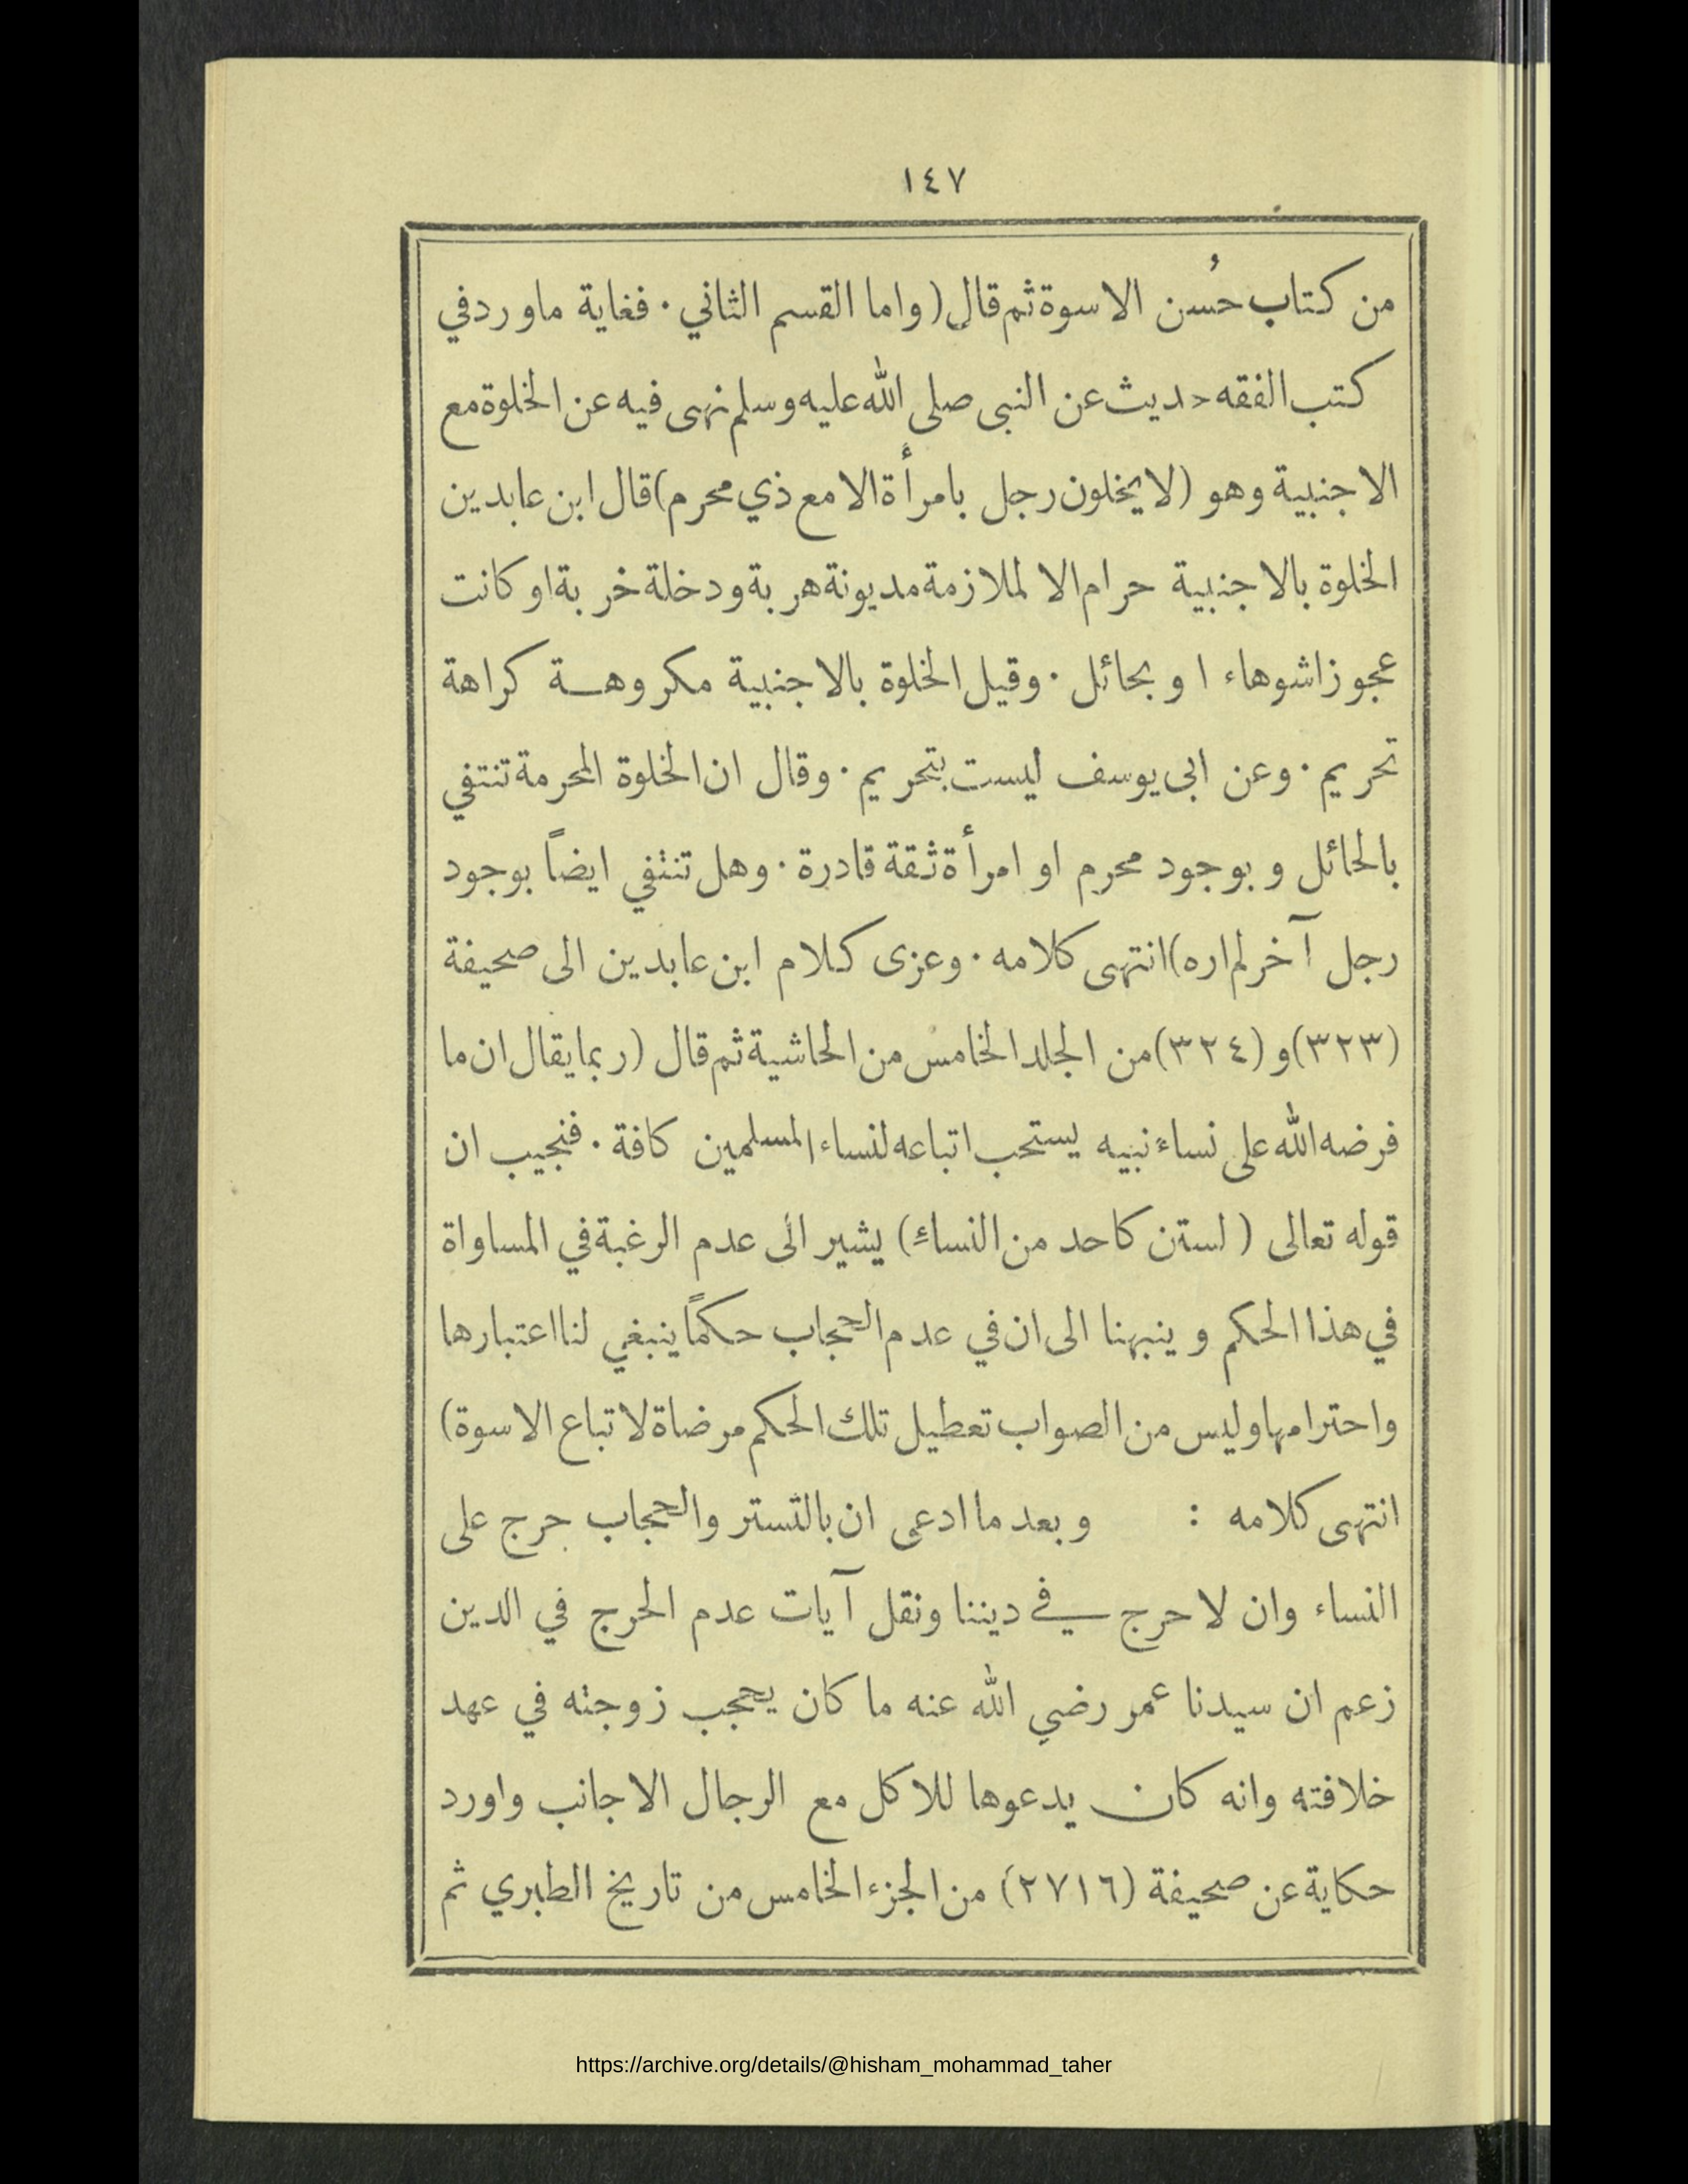 ١٤٧
من كتاب حُسن الاسوة ثم قال (واما القسم الثاني ٠ فغاية ماورد في
كتب الفقه حديث عن النبى صلى الله عليه وسلم نهى فيه عن الخلوة مع
الاجنبية وهو (لا يخلون رجل بامرأة الا مع ذي محرم) قال ابن عابدين
الخلوة بالاجنبية حرام الا لملازمة مديونة هربة ودخلة خربة او كانت
عجوزا شوهاء او بحائل ٠ وقيل الخلوة بالاجنبية مكروهة كراهة
تحريم ٠ وعن ابى يوسف ليست بتحريم ٠ وقال ان الخلوة المحرمة تنتفي
بالحائل و بوجود محرم او امرأة ثقة قادرة ٠ وهل تنتفي ايضاً بوجود
رجل آخر لم اره) انتهى كلامه ٠ وعزى كلام ابن عابدين الى صحيفة
(٣٢٣) و (٣٢٤) من الجلد الخامس من الحاشية ثم قال (ربما يقال ان ما
فرضه الله على نساء نبيه يستحب اتباعه لنساء المسلمين كافة ٠ فنجيب ان
قوله تعالى (لستن كاحد من النساء) يشير الى عدم الرغبة في المساواة
في هذا الحكم و ينبهنا الى ان في عدم الحجاب حكماً ينبغي لنا اعتبارها
واحترامها وليس من الصواب تعطيل تلك الحكم مرضاة لاتباع الاسوة)
انتهى كلامه : و بعد ما ادعى ان بالتستر والحجاب حرج على
النساء وان لا حرج في ديننا ونقل آيات عدم الحرج في الدين
زعم ان سيدنا عمر رضي الله عنه ما كان يحجب زوجته في عهد
خلافته وانه كان يدعوها للاكل مع الرجال الاجانب واورد
حكاية عن صحيفة (٢٧١٦) من الجزء الخامس من تاريخ الطبري ثم
https://archive.org/details/@hisham_mohammad_taher